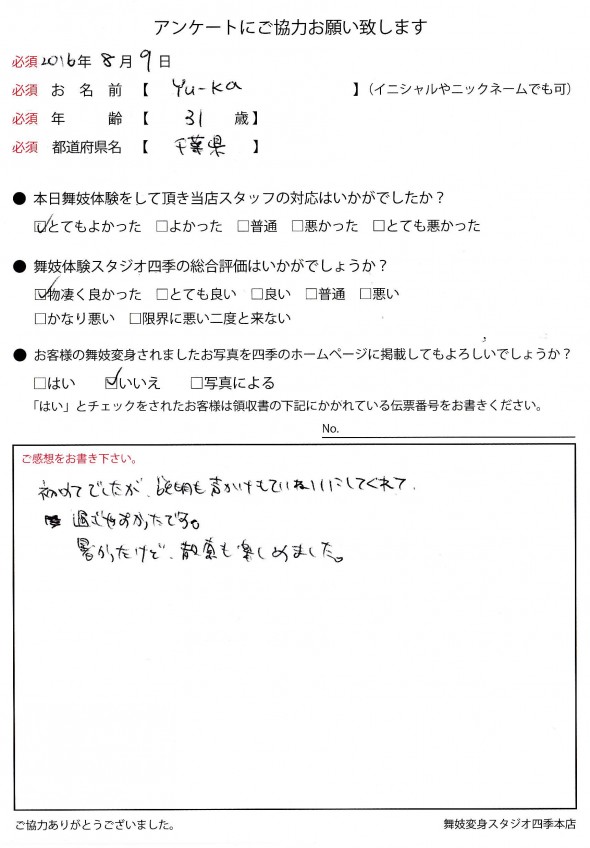 アンケートにご協力お願い致します
必須 2016年 8月 9日
必須 お名前【 Yu-ka 】（イニシャルやニックネームでも可）
必須 年齢【 31 歳】
必須 都道府県名【 千葉県 】
● 本日舞妓体験をして頂き当店スタッフの対応はいかがでしたか？
☑とてもよかった □よかった □普通 □悪かった □とても悪かった
● 舞妓体験スタジオ四季の総合評価はいかがでしょうか？
☑物凄く良かった □とても良い □良い □普通 □悪い
□かなり悪い □限界に悪い二度と来ない
● お客様の舞妓変身されましたお写真を四季のホームページに掲載してもよろしいでしょうか？
□はい ☑いいえ □写真による
「はい」とチェックをされたお客様は領収書の下記にかかれている伝票番号をお書きください。
No.
ご感想をお書き下さい。
初めてでしたが、説明も声かけもていねいにしてくれて
過ごしやすかったです。
暑かったけど、散策も楽しめました。
ご協力ありがとうございました。
舞妓変身スタジオ四季本店